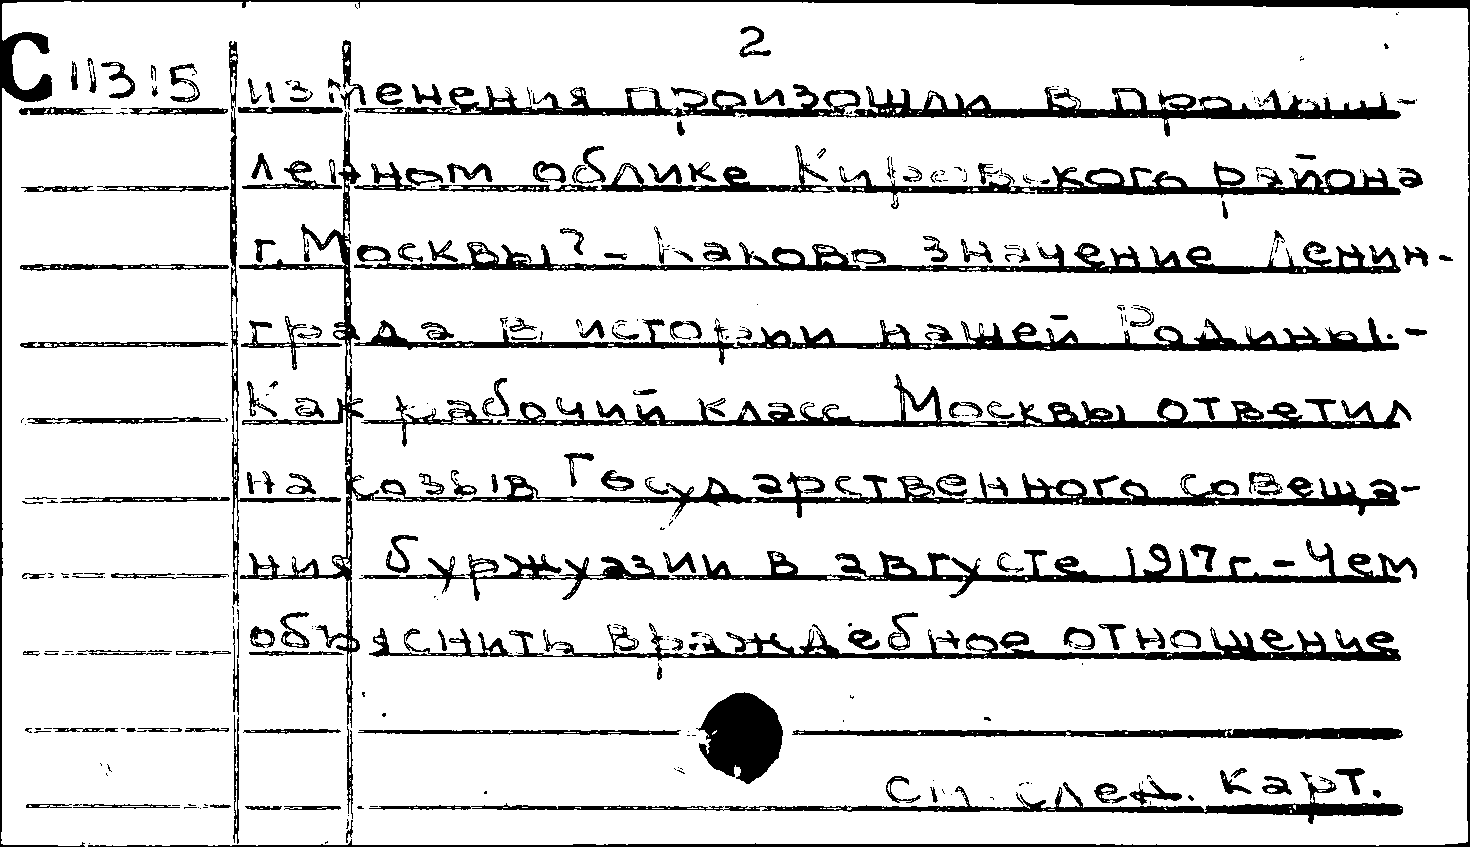 2
С 11315 изменения произошли в промыш-
ленном облике Кировского района
г. Москвы? - Каково значение Ленин-
града в истории нашей Родины. -
Как рабочий класс Москвы ответил
на созыв Государственного совеща-
ния буржуазии в августе 1917 г. - Чем
объяснить враждебное отношение
См. след. карт.